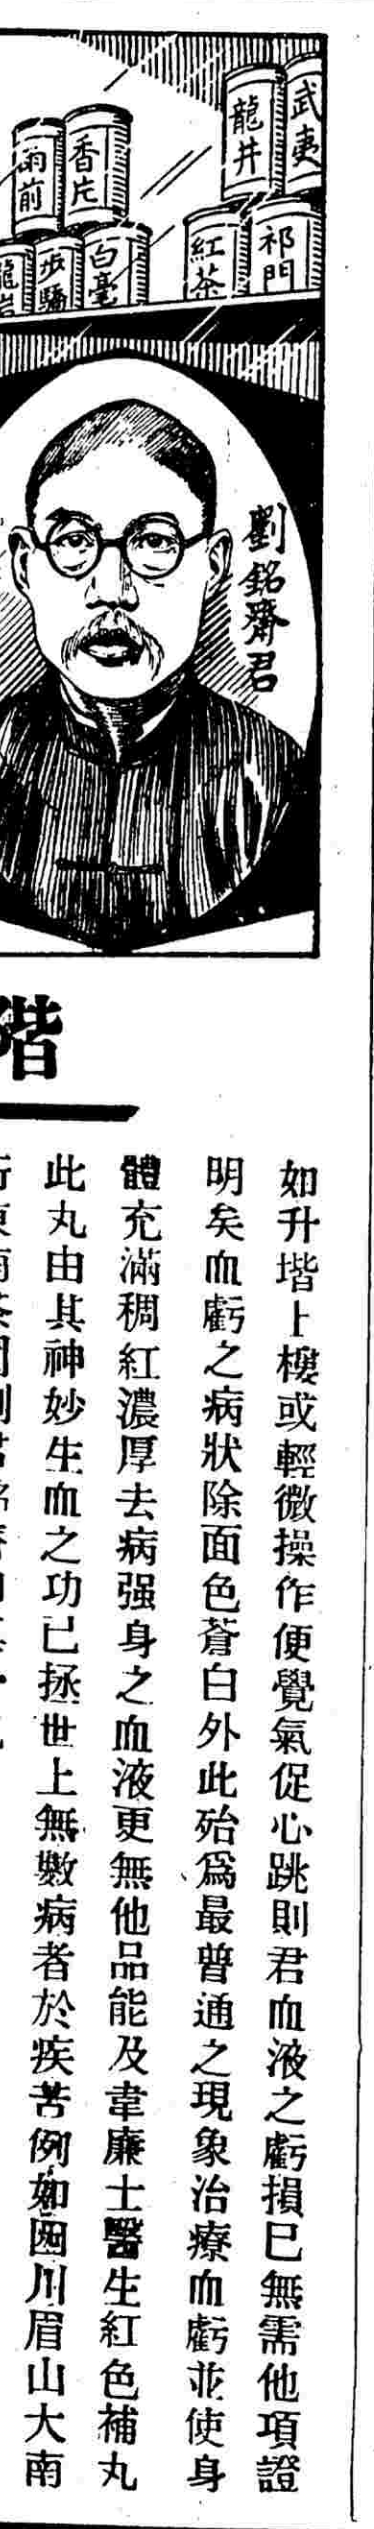 武夷
龍井
香片
雨前
祁門
紅茶
白毫
步驕
龍岩
劉銘齋君
階
如升堦上樓或輕微操作便覺氣促心跳則君血液之虧損已無需他項證
明矣血虧之病狀除面色蒼白外此殆爲最普通之現象治療血虧並使身
體充滿稠紅濃厚去病强身之血液更無他品能及韋廉士醫生紅色補丸
此丸由其神妙生血之功已拯世上無數病者於疾苦例如四川眉山大南